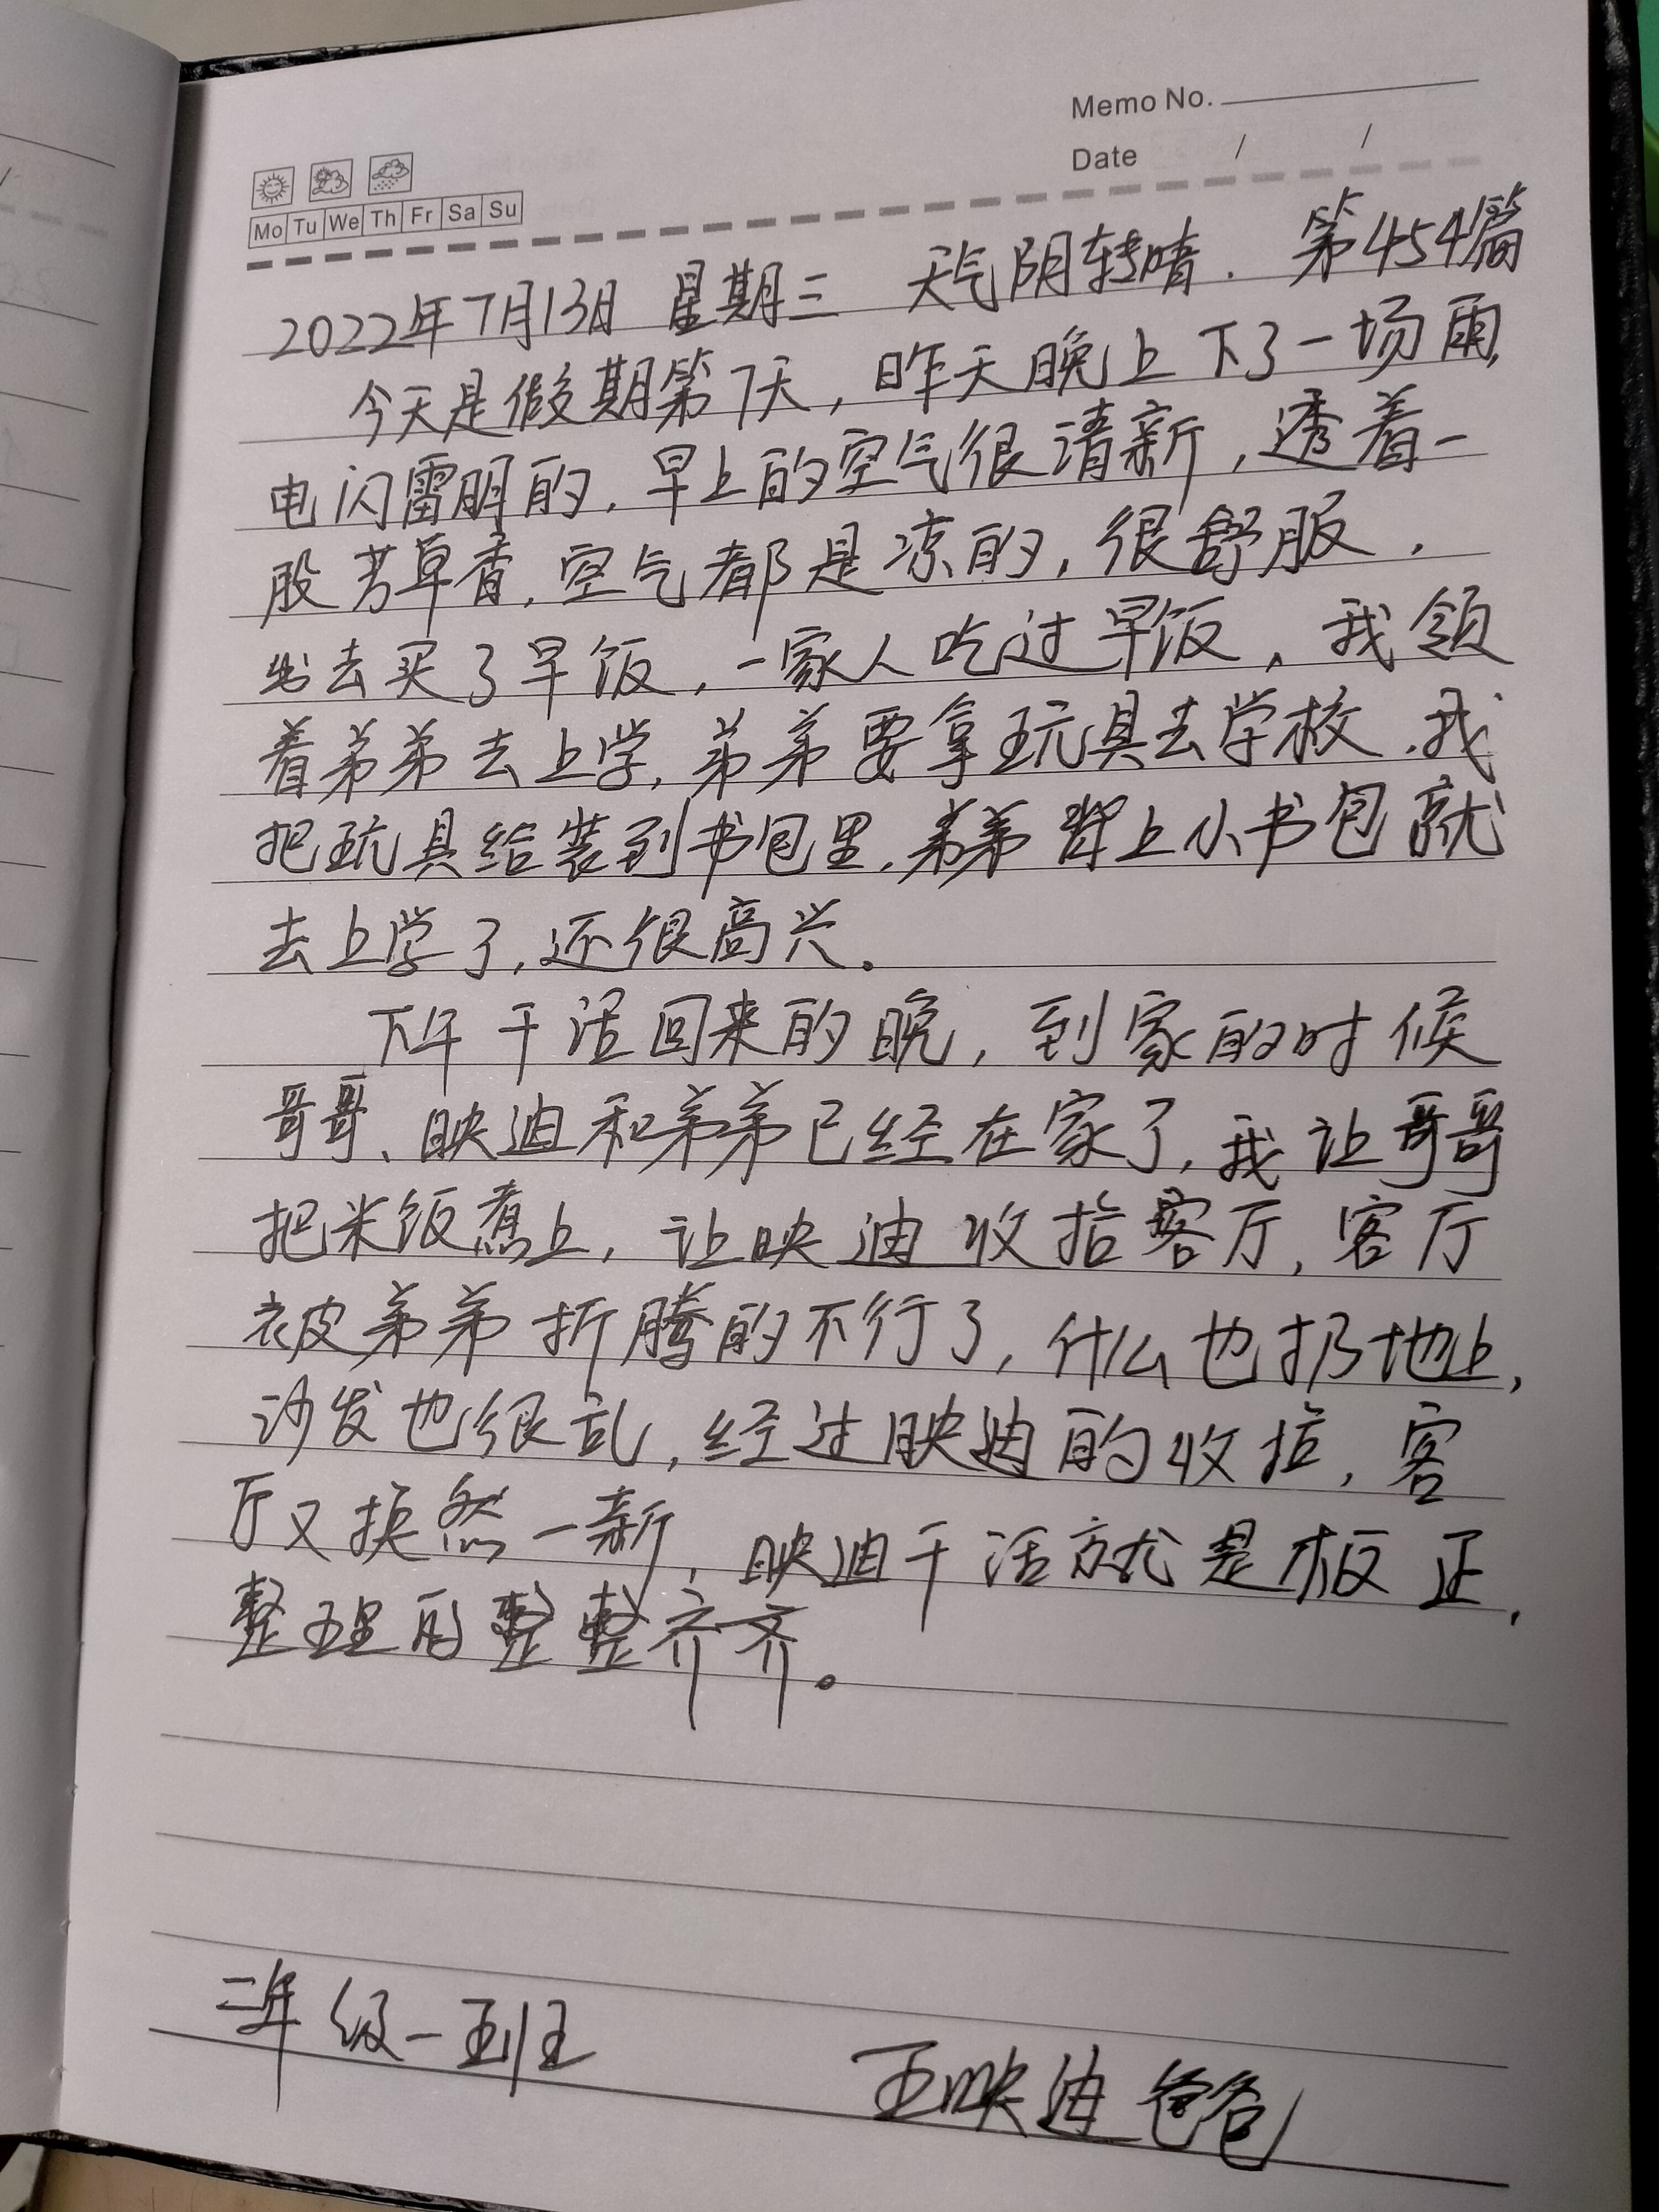 Memo No.
Date / /
Mo Tu We Th Fr Sa Su
2022年7月13日 星期三 天气阴转晴. 第454篇
今天是假期第7天,昨天晚上下了一场雨,
电闪雷明的,早上的空气很清新,透着一
股芳草香,空气都是凉的,很舒服,
出去买了早饭,一家人吃过早饭,我领
着弟弟去上学,弟弟要拿玩具去学校,我
把玩具给装到书包里,弟弟背上小书包就
去上学了,还很高兴。
下午干活回来的晚,到家的时候
哥哥、映迪和弟弟已经在家了,我让哥哥
把米饭煮上,让映迪收拾客厅,客厅
被弟弟折腾的不行了,什么也扔地上,
沙发也很乱,经过映迪的收拾,客
厅又换然一新,映迪干活就是板正,
整理的整整齐齐。
二年级一班
王映迪爸爸